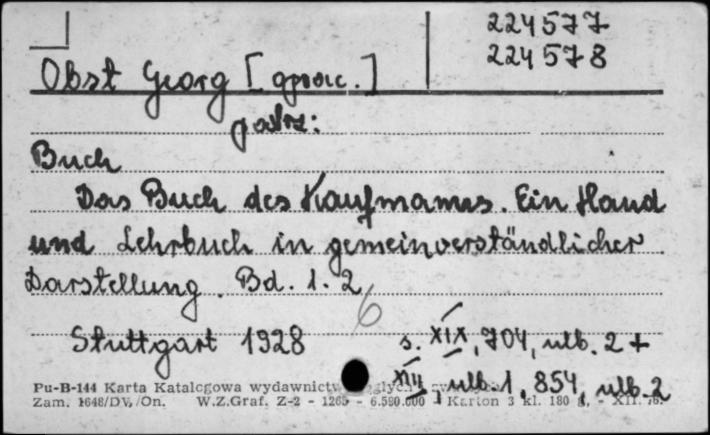 224577
224578
Obst Georg [oprac.]
patrz:
Buch
Das Buch des Kaufmannes. Ein Hand
und Lehrbuch in gemeinverständlicher
Darstellung. Bd. 1. 2
6
Stuttgart 1928 s. XIX, 704, nlb. 2 +
XIII, nlb. 1, 854, nlb. 2
Pu-B-144 Karta Katalogowa wydawnictw
Zam. 1648/DV./On. W.Z.Graf. Z-2 - 1265 - 6.590.000 - Karton 3 kl. 180 g. - XII.